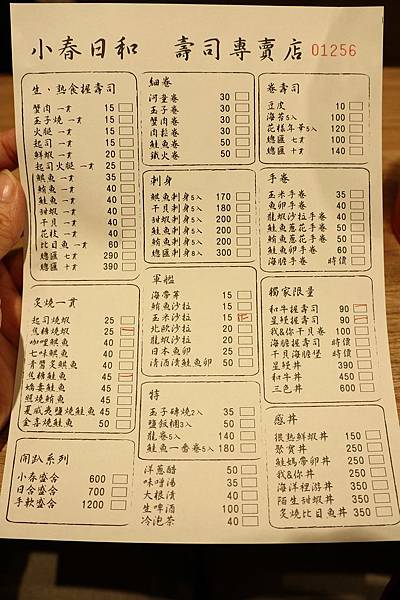 小春日和 壽司專賣店 01256
生、熟食握壽司
蟹肉 一貫 15
玉子燒 一貫 15
火腿 一貫 15
起司 一貫 15
鮮蝦 一貫 20
起司火腿 一貫 25
鯛魚 一貫 35
鮪魚 一貫 40
鮭魚 一貫 40
甜蝦 一貫 40
干貝 一貫 40
花枝 一貫 40
比目魚 一貫 60
總匯 七貫 290
總匯 十貫 390
炙燒一貫
起司燒蝦 25
焦糖燒蝦 25
咖哩鯛魚 40
七味鯛魚 40
青醬炙鯛魚 40
焦糖鮭魚 45
嬌妻鮭魚 45
照燒鮪魚 45
夏威夷鹽燒鮭魚 45
金喜燒鮭魚 50
開趴系列
小春盛合 600
日合盛合 700
手軟盛合 1200
細卷
河童卷 30
玉子卷 30
蟹肉卷 30
肉鬆卷 30
鮭魚卷 50
鐵火卷 50
刺身
鯛魚刺身5入 170
干貝刺身5入 180
甜蝦刺身5入 200
鮭魚刺身5入 200
鮪魚刺身5入 200
總匯刺身8入 300
軍艦
海帶芽 15
鮪魚沙拉 15
玉米沙拉 15
北歐沙拉 20
龍蝦沙拉 20
日本魚卵 20
清酒漬鮭魚卵 50
特
玉子磚燒2入 35
鹽飯糰3入 50
龍卷5入 140
鮭魚一番卷5入 180
洋蔥醋 50
味噌湯 35
大根漬 40
生啤酒 100
冷泡茶 40
卷壽司
豆皮 10
海苔5入 100
花樣年華5入 120
總匯 五貫 100
總匯 十貫 140
手卷
玉米手卷 35
魚卵手卷 40
龍蝦沙拉手卷 40
鮭魚蔥花手卷 50
鮪魚蔥花手卷 50
鮭魚卵手卷 60
海膽手卷 時價
獨家限量
和牛握壽司 90
星鰻握壽司 90
我&你干貝卷 100
海膽握壽司 時價
干貝海膽堡 時價
星鰻丼 390
和牛丼 450
三色丼 600
癮丼
很熟鮮蝦丼 150
聚寶丼 250
鮭媽帶卵丼 250
我&你丼 250
海洋裡游丼 350
陌生甜蝦丼 350
炙燒比目魚丼 350